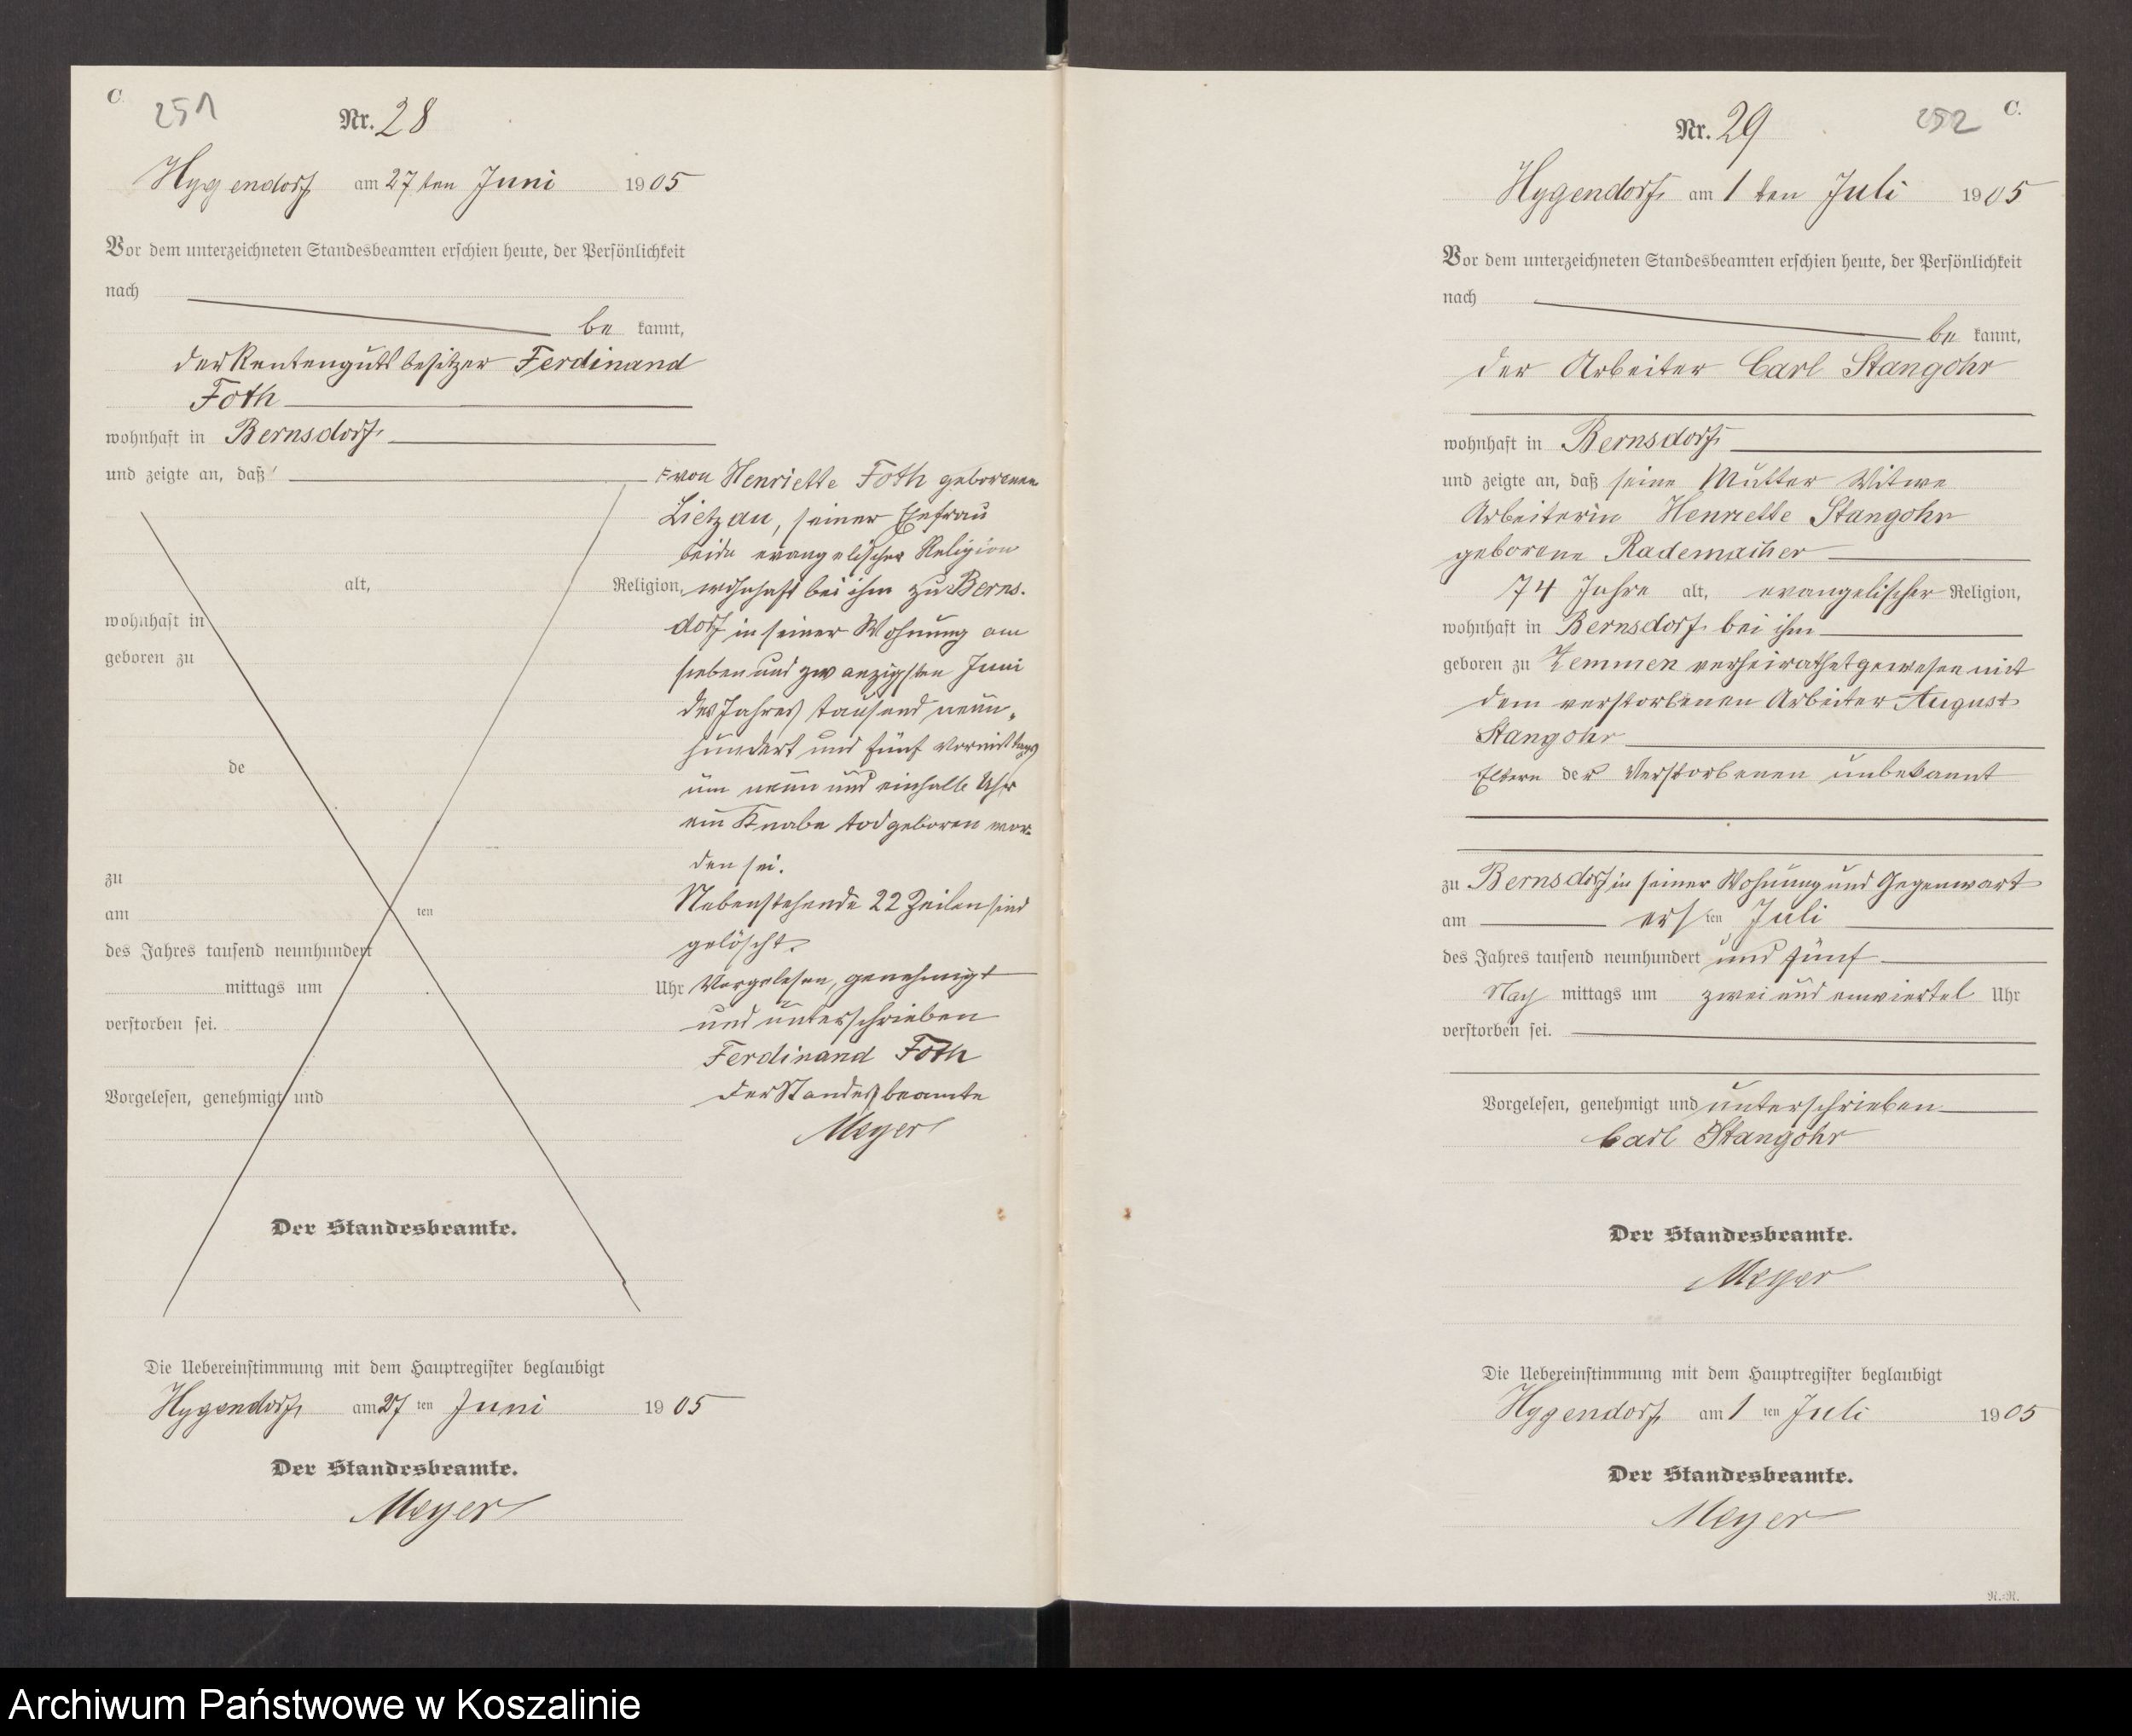 C.
251
Nr. 28
Hygendorf am 27 ten Juni 1905
Vor dem unterzeichneten Standesbeamten erschien heute, der Persönlichkeit
nach
be kannt,
der Rentengutsbesitzer Ferdinand
Foth
wohnhaft in Bernsdorf
und zeigte an, daß von Henriette Foth geborenen
Lietzau, seiner Ehefrau
beide evangelischer Religion
alt, Religion, wohnhaft bei ihm zu Berns-
wohnhaft in dorf in seiner Wohnung am
geboren zu sieben und zwanzigsten Juni
des Jahres tausend neun-
hundert und fünf vormittags
de um neun und einhalb Uhr
ein Knabe todgeboren wor-
den sei.
zu Nebenstehende 22 Zeilen sind
am ten gelöscht.
des Jahres tausend neunhundert
mittags um Uhr Vorgelesen, genehmigt
verstorben sei. und unterschrieben
Ferdinand Foth
Vorgelesen, genehmigt und der Standesbeamte
Meyer
Der Standesbeamte.
Die Uebereinstimmung mit dem Hauptregister beglaubigt
Hygendorf am 27 ten Juni 1905
Der Standesbeamte.
Meyer
C.
252
Nr. 29
Hygendorf am 1 ten Juli 1905
Vor dem unterzeichneten Standesbeamten erschien heute, der Persönlichkeit
nach
be kannt,
der Arbeiter Carl Stangohr
wohnhaft in Bernsdorf
und zeigte an, daß seine Mutter Witwe
Arbeiterin Henriette Stangohr
geborene Rademacher
74 Jahre alt, evangelischer Religion,
wohnhaft in Bernsdorf bei ihm
geboren zu Zemmen verheirathet gewesen mit
dem verstorbenen Arbeiter August
Stangohr
Eltern der Verstorbenen unbekannt
zu Bernsdorf in seiner Wohnung und Gegenwart
am ers ten Juli
des Jahres tausend neunhundert und fünf
Nach mittags um zwei und einviertel Uhr
verstorben sei.
Vorgelesen, genehmigt und unterschrieben
Carl Stangohr
Der Standesbeamte.
Meyer
Die Uebereinstimmung mit dem Hauptregister beglaubigt
Hygendorf am 1 ten Juli 1905
Der Standesbeamte.
Meyer
N.=N.
Archiwum Państwowe w Koszalinie